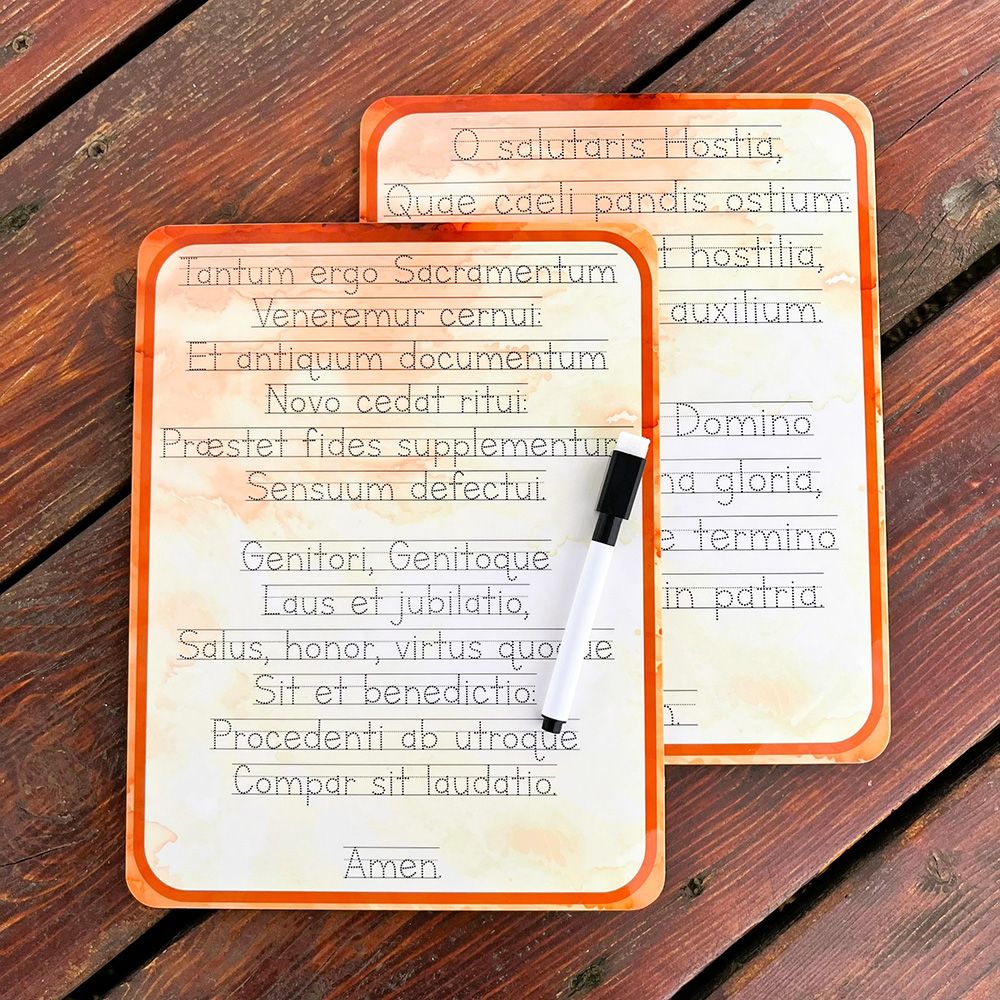 O salutaris Hostia,
Quae caeli pandis ostium:
hostilia,
auxilium.
Domino
gloria,
termino
in patria.
Tantum ergo Sacramentum
Veneremur cernui:
Et antiquum documentum
Novo cedat ritui:
Præstet fides supplementum
Sensuum defectui.
Genitori, Genitoque
Laus et jubilatio,
Salus, honor, virtus quoque
Sit et benedictio:
Procedenti ab utroque
Compar sit laudatio.
Amen.